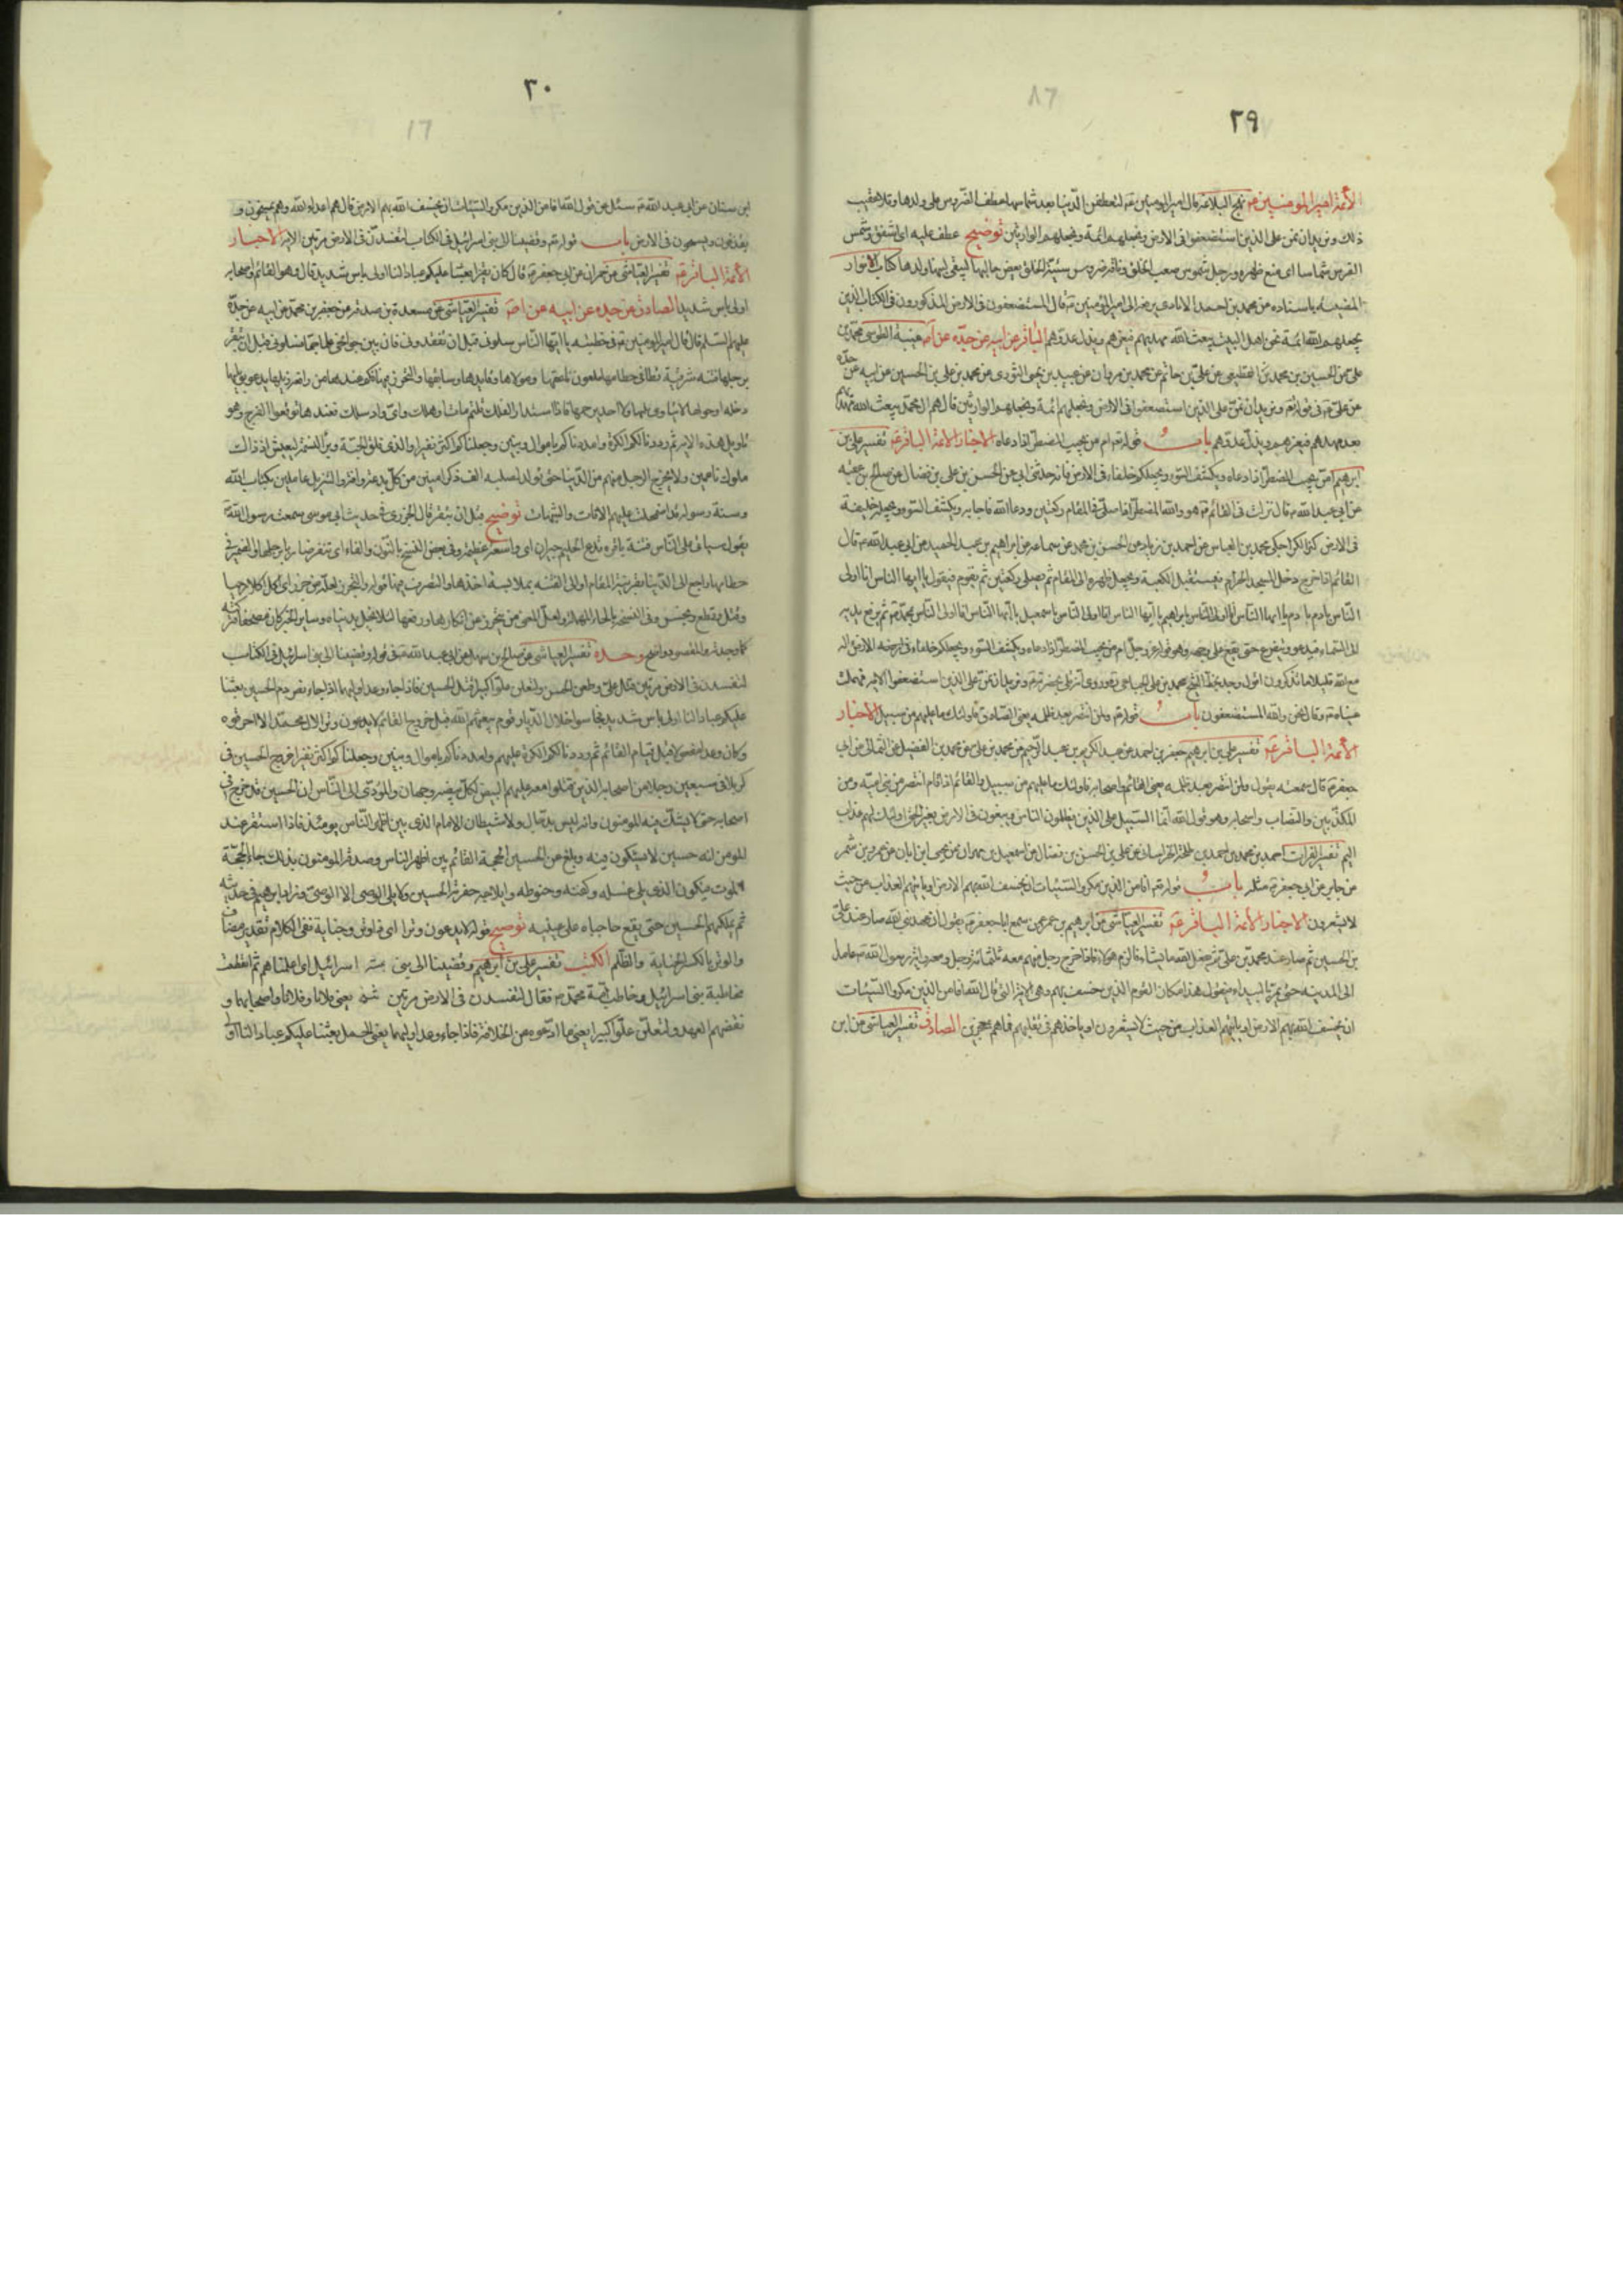 ٢٩
الأئمة امير المومنين م نهج البلاغه قال امير المومنين ع لتعطفن الدنيا بعد شماسها عطف الضروس على ولدها وتلا عقيب
ذلك ونريد ان نمن على الذين استضعفوا فى الارض ونجعلهم ائمة ونجعلهم الوارثين توضيح عطف عليه اى اشفق وشمس
الفرس شماسا اى منع ظهره ورجل شموس صعب الخلق وناقة ضروس سيئة الخلق يعض حالبها ليبقى لبنها لولدها كتاب الانوار
المضيئه باسناده عن محمد بن احمد الايادى يرفعه الى امير المومنين ع قال المستضعفون فى الارض المذكورون فى الكتاب الذين
يجعلهم الله ائمة نحن اهل البيت يبعث الله مهديهم فيعزهم ويذل عدوهم الباقر عن ابيه عن جده عن امـ غيبة الطوسى محمد بن
على عن الحسين بن محمد عن على بن حاتم عن محمد بن مروان عن عبيد بن يحيى الثورى عن محمد بن على بن الحسين عن ابيه عن جده
عن على ع فى قوله تع ونريد ان نمن على الذين استضعفوا فى الارض ونجعلهم ائمة ونجعلهم الوارثين قال هم ال محمد يبعث الله مهديهم
بعد جهدهم فيعزهم ويذل عدوهم باب قوله تع ام من يجيب المضطر اذا دعاه الاخبار الائمة الباقر ع تفسير على بن
ابرهيم امن يجيب المضطر اذا دعاه ويكشف السوء ويجعلكم خلفاء فى الارض فانه حدثنى ابى عن الحسن بن على بن فضال عن صالح بن عقبه
عن ابى عبد الله ع قال نزلت فى القائم ع هو والله المضطر اذا صلى فى المقام ركعتين ودعا الله فاجابه ويكشف السوء ويجعله خليفة
فى الارض محمد بن العباس عن احمد بن زياد عن الحسن بن محمد عن سماعه عن ابراهيم بن عبد الحميد عن ابى عبد الله ع قال
القائم اذا خرج دخل المسجد الحرام فيستقبل الكعبة ويجعل ظهره الى المقام ثم يصلى ركعتين ثم يقوم فيقول يا ايها الناس انا اولى
الناس بادم يا ايها الناس انا اولى الناس بابراهيم يا ايها الناس انا اولى الناس باسمعيل يا ايها الناس انا اولى الناس بمحمد ثم يرفع يديه
الى السماء فيدعو ويتضرع حتى يقع على وجهه وهو قوله عز وجل ام من يجيب المضطر اذا دعاه ويكشف السوء ويجعلكم خلفاء فى الارض ءاله
مع الله قليلا ما تذكرون
وقال نحن والله المستضعفون باب قوله تع ولمن انتصر بعد ظلمه فاولئك ما عليهم من سبيل الاخبار
الائمة الباقر ع تفسير على بن ابرهيم جعفر بن احمد عن عبد الكريم بن عبد الرحيم عن محمد بن على عن محمد بن الفضيل عن الثمالى عن ابى
جعفر ع قال سمعته يقول ولمن انتصر بعد ظلمه يعنى القائم واصحابه فاولئك ما عليهم من سبيل والقائم اذا قام انتصر من بنى اميه ومن
المكذبين والنصاب واصحابه وهو قول الله انما السبيل على الذين يظلمون الناس ويبغون فى الارض بغير الحق اولئك لهم عذاب
اليم تفسير الفرات احمد بن محمد بن احمد بن طلحة الخراسانى عن على بن الحسن بن فضال عن اسمعيل بن مهران عن يحيى ابن ابان عن عمرو بن شمر
عن جابر عن ابى جعفر ع مثله باب قوله تع افامن الذين مكروا السيئات ان يخسف الله بهم الارض او ياتيهم العذاب من حيث
لا يشعرون الاخبار الائمة الباقر ع تفسير العياشى عن ابرهيم بن عمر عمن سمع ابا جعفر ع يقول ان عهد نبى الله صار عند على
بن الحسين ثم صار عند محمد بن على ثم يفعل الله ما يشاء فالزم هؤلاء فاذا خرج رجل منهم معه ثلثمائة رجل ومعه راية رسول الله ص عامدا
الى المدينه حتى يمر بالبيداء فيقول هذا مكان القوم الذين خسف بهم وهى الاية التى قال الله افامن الذين مكروا السيئات
ان يخسف الله بهم الارض او ياتيهم العذاب من حيث لا يشعرون او ياخذهم فى تقلبهم فما هم بمعجزين الصادق تفسير العياشى عن ابن
٣٠
ابن سنان عن ابى عبد الله ع سئل عن قول الله افامن الذين مكروا السيئات ان يخسف الله بهم الارض قال هم اعداء الله وهم يمسخون و
يقذفون ويسيحون فى الارض باب قوله تع وقضينا الى بنى اسرائيل فى الكتاب لتفسدن فى الارض مرتين الاية الاخبار
الائمة الباقر ع تفسير العياشى عن حمران عن ابى جعفر ع قال كان يقرا بعثنا عليكم عبادا لنا اولى باس شديد قال وهو القائم واصحابه
اولى باس شديد الصادق عن جده عن ابيه عن امـ تفسير العياشى عن مسعدة بن صدقه عن جعفر بن محمد عن ابيه عن جده
عليهم السلم قال قال امير المومنين ع فى خطبته يا ايها الناس سلونى قبل ان تفقدونى فان بين جوانحى علما جما فسلونى قبل ان تبقر
برجلها فتنة شرقية تطا فى حطامها ملعون ناعقها ومولاها وقايدها وسايقها والمتحرز فيها فكم عندها من رافعة ذيلها يدعو بويلها
دجلة او حولها لا ماوى يكنها ولا احد يرحمها فاذا استدار الفلك قلتم مات او هلك واى واد سلك فعندها توقعوا الفرج وهو
تاويل هذه الاية ثم رددنا لكم الكرة وامددناكم باموال وبنين وجعلناكم اكثر نفيرا والذى فلق الحبة وبرا النسمة ليعيش اذ ذاك
ملوك ناعمين ولا يخرج الرجل منهم من الدنيا حتى يولد لصلبه الف ذكر امنين من كل بدعة وافة والتنزيل عاملين بكتاب الله
وسنة رسوله قد اضمحلت عليهم الافات والشبهات توضيح قبل ان تبقر قال الجزرى فى حديث ابى موسى سمعت رسول الله
يقول سياتى على الناس فتنة باقرة تدع الحليم حيران اى واسعة عظيمة وفى بعض النسخ بالنون والفاء اى تنفر ضاربا برجلها والضمير فى
حطامها راجع الى الدنيا بقرينة المقام او الى الفتنه بملابسة اخذها والتصرف فيها قوله والمتجرز لعله من جرز اى اكل اكلا وحيا
وقتل وقطع وبخس وفى النسخة بالحاء المهملة ولعل المعنى من يتحرز من انكارها ورفعها لئلا يخل بدنياه وساير الخبر كان مصحفا فتركته
كما وجدته والمقصود واضح وحده تفسير العياشى عن صالح بن سهل عن ابى عبد الله ع فى قوله وقضينا الى بنى اسرائيل فى الكتاب
لتفسدن فى الارض مرتين قتل على وطعن الحسن ولتعلن علوا كبيرا قتل الحسين فاذا جاء وعد اوليهما اذا جاء نصر دم الحسين بعثنا
عليكم عبادا لنا اولى باس شديد فجاسوا خلال الديار قوم يبعثهم الله قبل خروج القائم لا يدعون وترا لال محمد الا احرقوه
وكان وعدا مفعولا قبل قيام القائم ثم رددنا لكم الكرة عليهم وامددناكم باموال وبنين وجعلناكم اكثر نفيرا خروج الحسين فى
كربلا فى سبعين رجلا من اصحابه الذين قتلوا معه عليهم البيض لكل بيضه وجهان والمودى الى الناس ان الحسين قد خرج فى
اصحابه حتى لا يشك فيه المومنون وانه ليس بدجال ولا شيطان الامام الذى بين اظهر الناس يومئذ فاذا استقر عند
المومن انه حسين لا يشكون فيه وبلغ عن الحسين الحجة القائم بين اظهر الناس وصدقه المومنون بذلك جاء الحجة
الموت فيكون الذى يلى غسله وكفنه وحنوطه وايلاجه حفرته الحسين ولا يلى الوصى الا الوصى وزاد ابرهيم فى حديثه
ثم يملكهم الحسين حتى يقع حاجباه على عينيه توضيح قوله لا يدعون وترا اى ذا وتر وجناية ففى الكلام تقدير مضاف
والوتر بالكسر الجناية والظلم الكتب تفسير على بن ابرهيم وقضينا الى بنى اسرائيل اى اعلمناهم ثم انقطعت
مخاطبة بنى اسرائيل وخاطب امة محمد ص فقال لتفسدن فى الارض مرتين يعنى فلانا وفلانا واصحابهما و
نقضهم العهد ولتعلن علوا كبيرا يعنى ما ادعوه من الخلافة فاذا جاء وعد اوليهما يعنى الجمل بعثنا عليكم عبادا لنا اولى